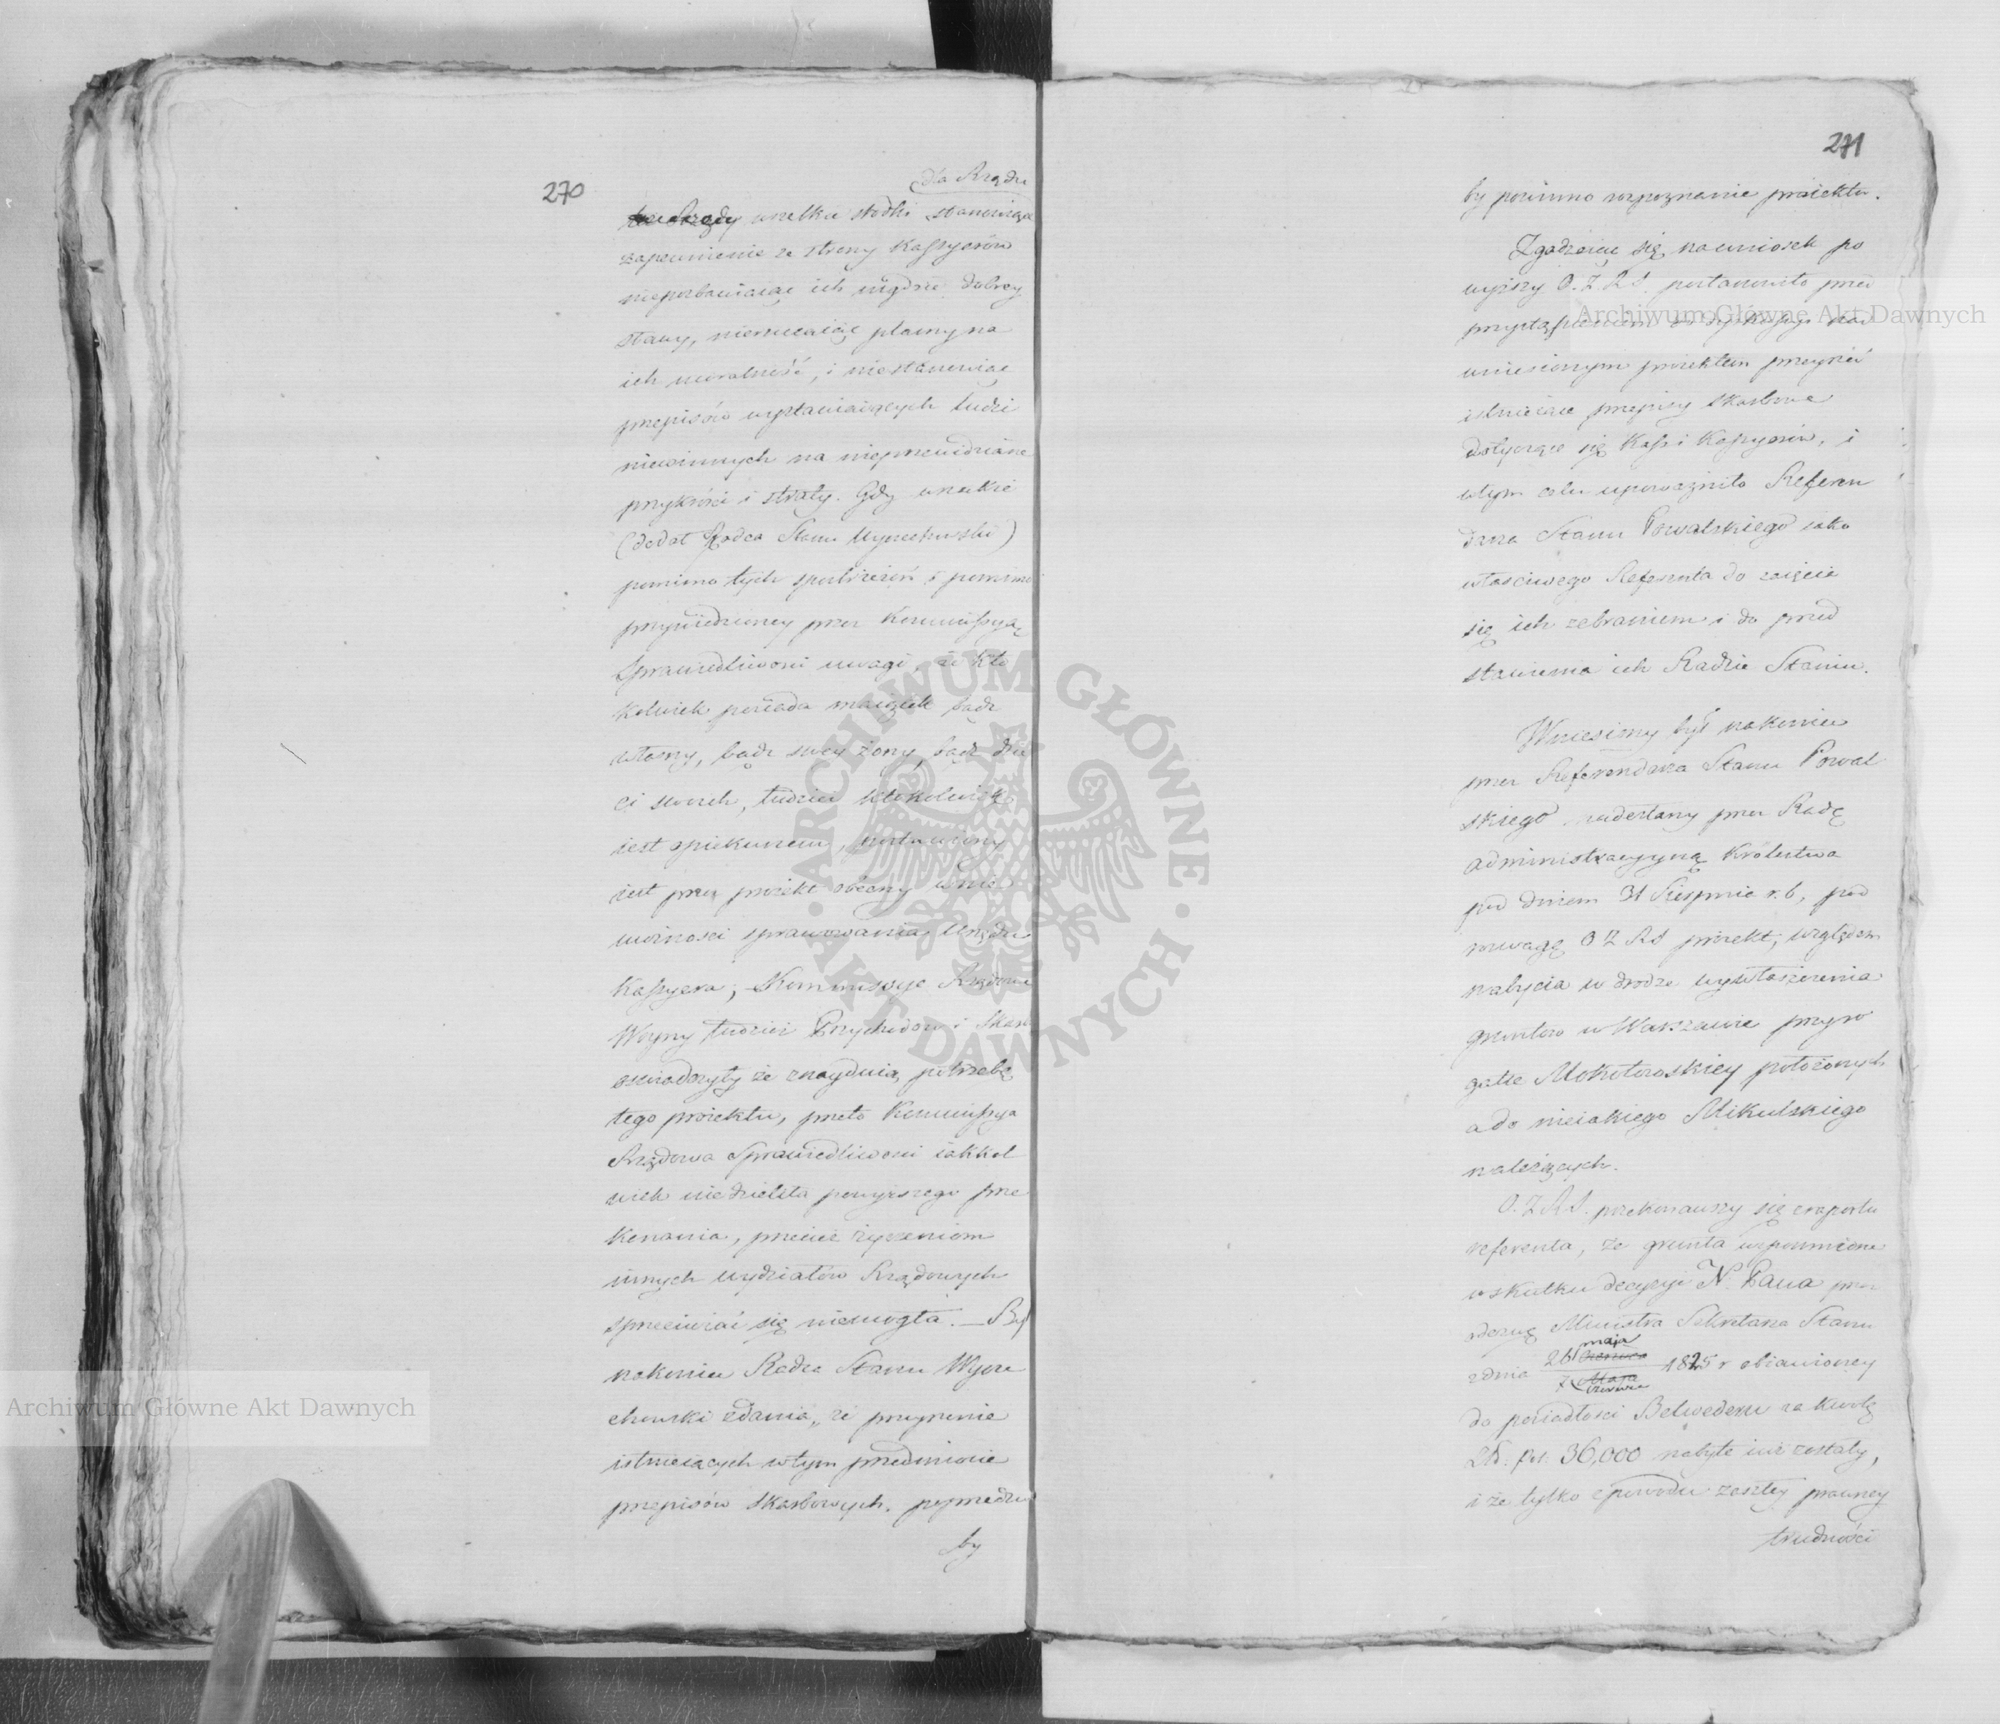 270
dla Rządu
wszelkie środki stanowiące
zapewnienie ze strony Kassyerów
niepozbawiaiąc ich nigdzie dobrey
sławy, nierzucaiąc plamy na
ich moralność, i niestanowiąc
przepisów wystawiaiących ludzi
niewinnych na nieprzewidziane
przykrości i straty. Gdy wszakże
(dodał Radca Stanu Wyczechowski)
pomimo tych spostrzeżeń i pomimo
przywiedzioney przez Kommissyą
Sprawiedliwości uwagi, że kto
kolwiek posiada maiątek bądź
własny, bądź swey żony, bądź dzie
ci swoich, tudzież ktokolwiek
iest opiekunem, postawiony
iest przez proiekt obecny w nie
możności sprawowania Urzędu
Kassyera; Kommissye Rządowe
Woyny tudzież Przychodów i Skar
oświadczyły że znayduią potrzebę
tego proiektu, przeto Kommissya
Rządowa Sprawiedliwości iakkol
wiek niedzieliła powyższego prze
konania, przecież życzeniom
innych wydziałów Rządowych
sprzeciwiać się niemogła. — Był
nakoniec Radca Stanu Wycze
chowski zdania, że przeyrzenie
istnieiących w tym przedmiocie
przepisów skarbowych, poprzedzić
by
271
by powinno rozpoznanie proiektu.
Zgadzaiąc się na wniosek po
wyższy O. Z. R. S. postanowiło przed
przystąpieniem do dyskussyi nad
wniesionym proiektem przeyrzeć
istnieiące przepisy skarbowe
dotyczące się Kass i Kassyerów, i
w tym celu upoważniło Referen
darza Stanu Powalskiego iako
właściwego Referenta do zaięcia
się ich zebraniem i do przed
stawienia ich Radzie Stanu.
Wniesiony był nakoniec
przez Referendarza Stanu Powal
skiego nadesłany przez Radę
administracyyną Królestwa
pod dniem 31 Sierpnia r. b, pod
rozwagę O Z R S proiekt, względem
nabycia w drodze wywłaszczenia
gruntów w Warszawie przy ro
gatce Mokotowskiey położonych
a do nieiakiego Mikulskiego
należących.
O. Z. R. S. przekonawszy się z raportu
referenta, że grunta wspomnione
w skutku decyzyi N. Pana przez
odezwę Ministra Sekretarza Stanu
z dnia 26 maja / 7 Czerwca 1825 r obiawioney
do posiadłości Belwederu za kwotę
Zł. pol. 36,000 nabyte iuż zostały,
i że tylko z powodu zaszłey prawney
trudności
Archiwum Główne Akt Dawnych
Archiwum Główne Akt Dawnych
ARCHIWUM GŁÓWNE · AKT DAWNYCH ·